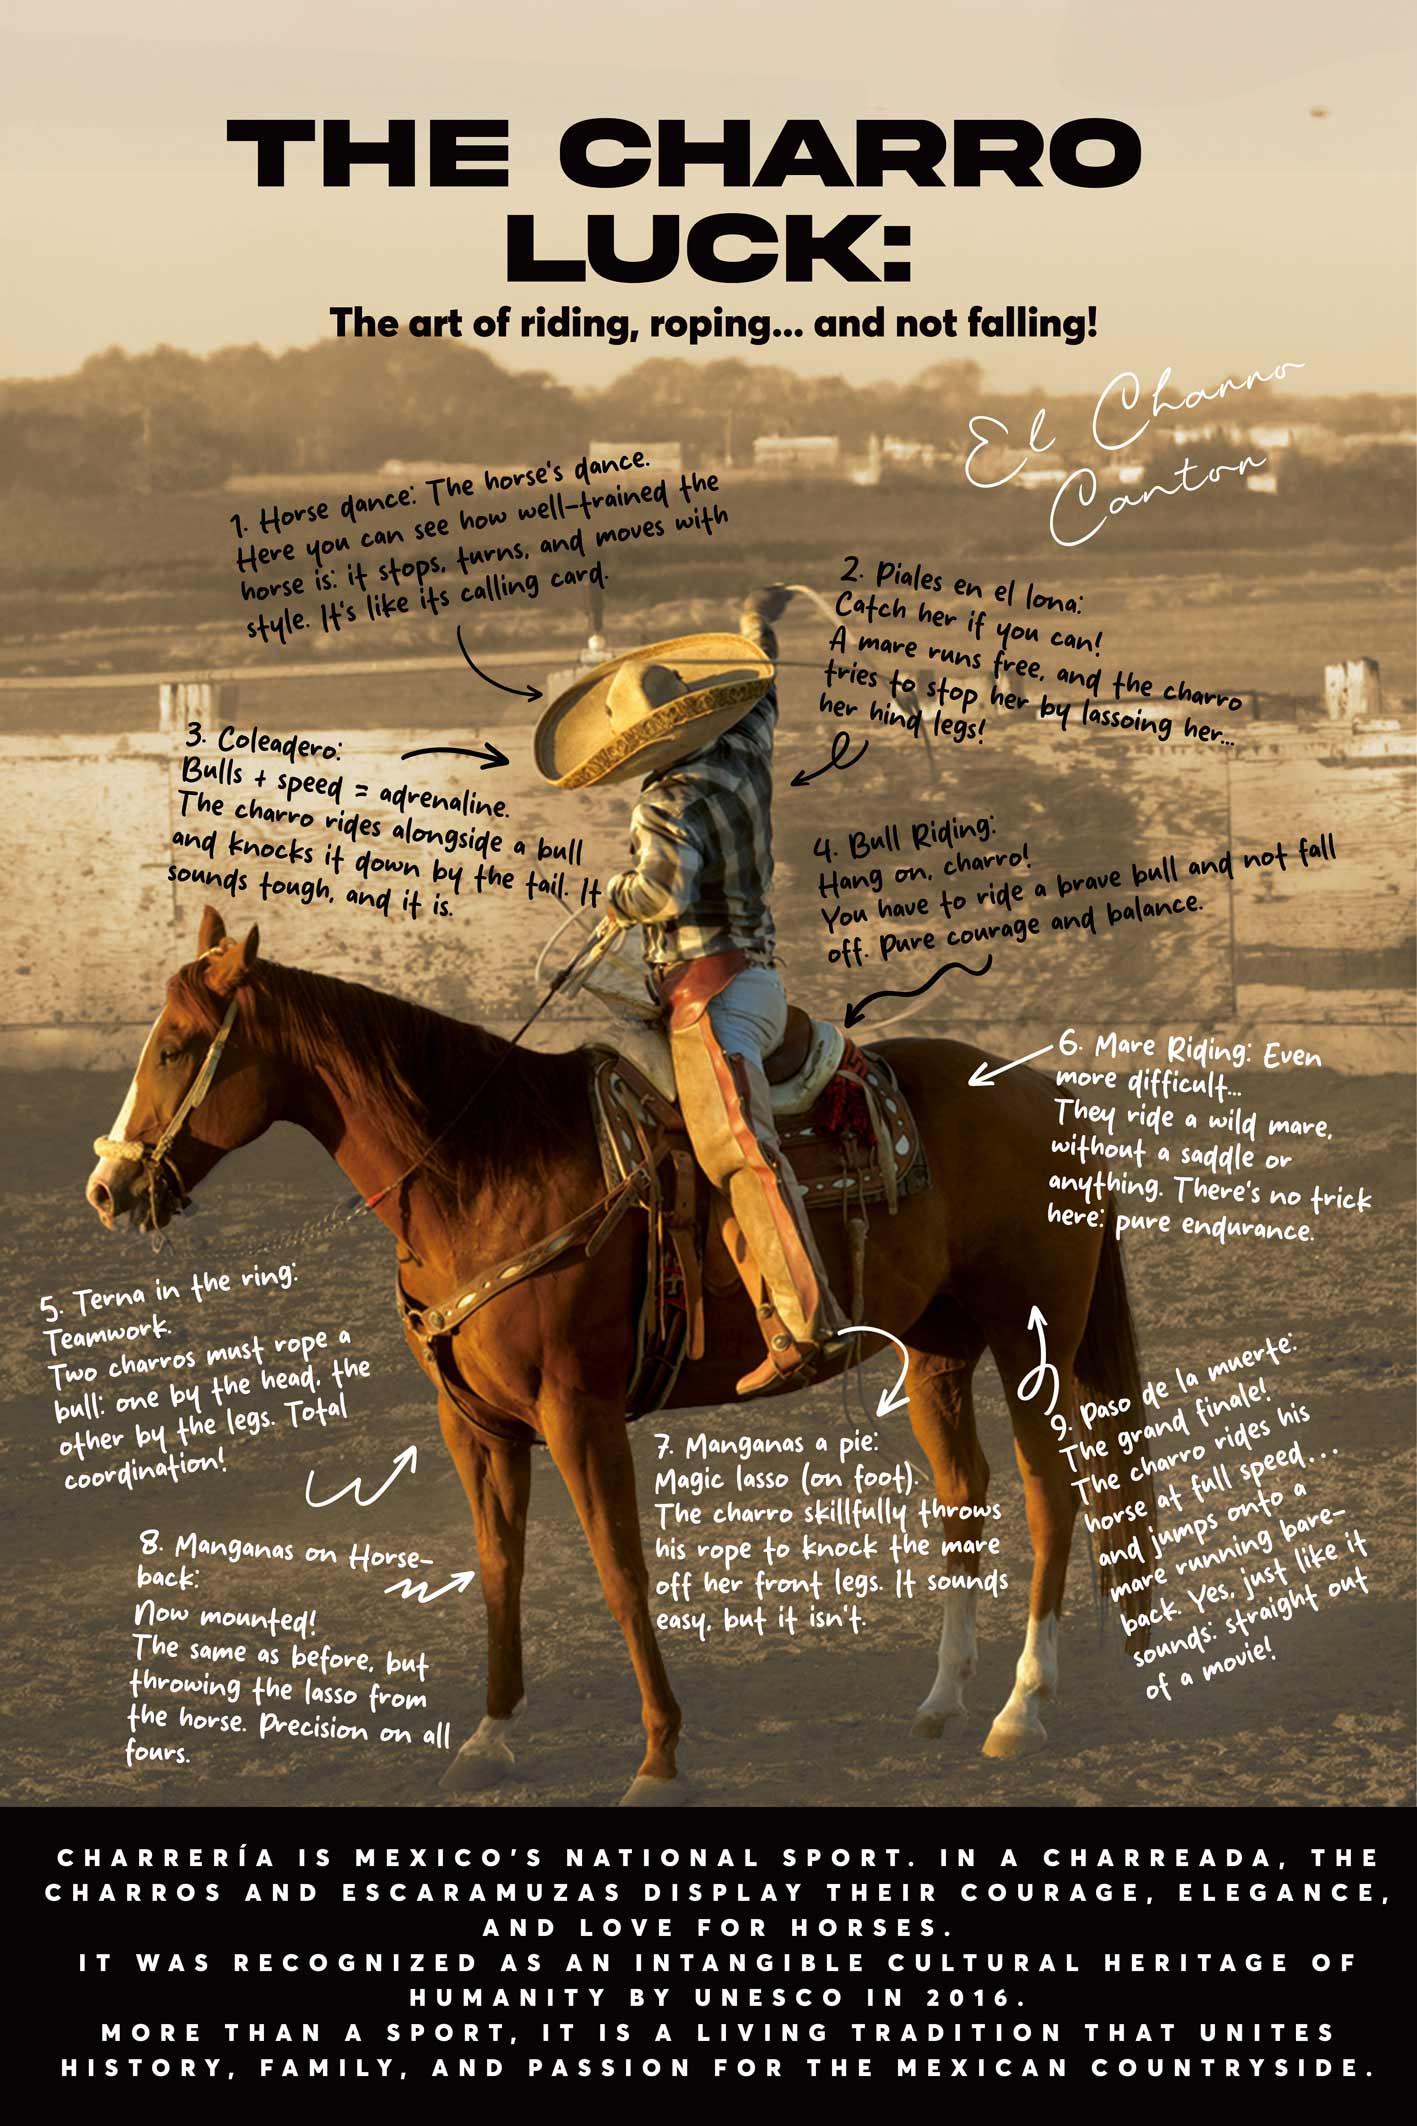 THE CHARRO
LUCK:
The art of riding, roping... and not falling!
El Charro
Canton
1. Horse dance: The horse's dance.
Here you can see how well-trained the
horse is: it stops, turns, and moves with
style. It's like its calling card.
2. Piales en el lona:
Catch her if you can!
A mare runs free, and the charro
tries to stop her by lassoing her...
her hind legs!
3. Coleadero:
Bulls + speed = adrenaline.
The charro rides alongside a bull
and knocks it down by the tail. It
sounds tough, and it is.
4. Bull Riding:
Hang on, charro!
You have to ride a brave bull and not fall
off. Pure courage and balance.
5. Terna in the ring:
Teamwork.
Two charros must rope a
bull: one by the head, the
other by the legs. Total
coordination!
6. Mare Riding: Even
more difficult...
They ride a wild mare,
without a saddle or
anything. There's no trick
here: pure endurance.
7. Manganas a pie:
Magic lasso (on foot).
The charro skillfully throws
his rope to knock the mare
off her front legs. It sounds
easy, but it isn't.
8. Manganas on Horse-
back:
Now mounted!
The same as before, but
throwing the lasso from
the horse. Precision on all
fours.
9. Paso de la muerte:
The grand finale!
The charro rides his
horse at full speed...
and jumps onto a
mare running bare-
back. Yes, just like it
sounds: straight out
of a movie!
CHARRERÍA IS MEXICO'S NATIONAL SPORT. IN A CHARREADA, THE
CHARROS AND ESCARAMUZAS DISPLAY THEIR COURAGE, ELEGANCE,
AND LOVE FOR HORSES.
IT WAS RECOGNIZED AS AN INTANGIBLE CULTURAL HERITAGE OF
HUMANITY BY UNESCO IN 2016.
MORE THAN A SPORT, IT IS A LIVING TRADITION THAT UNITES
HISTORY, FAMILY, AND PASSION FOR THE MEXICAN COUNTRYSIDE.